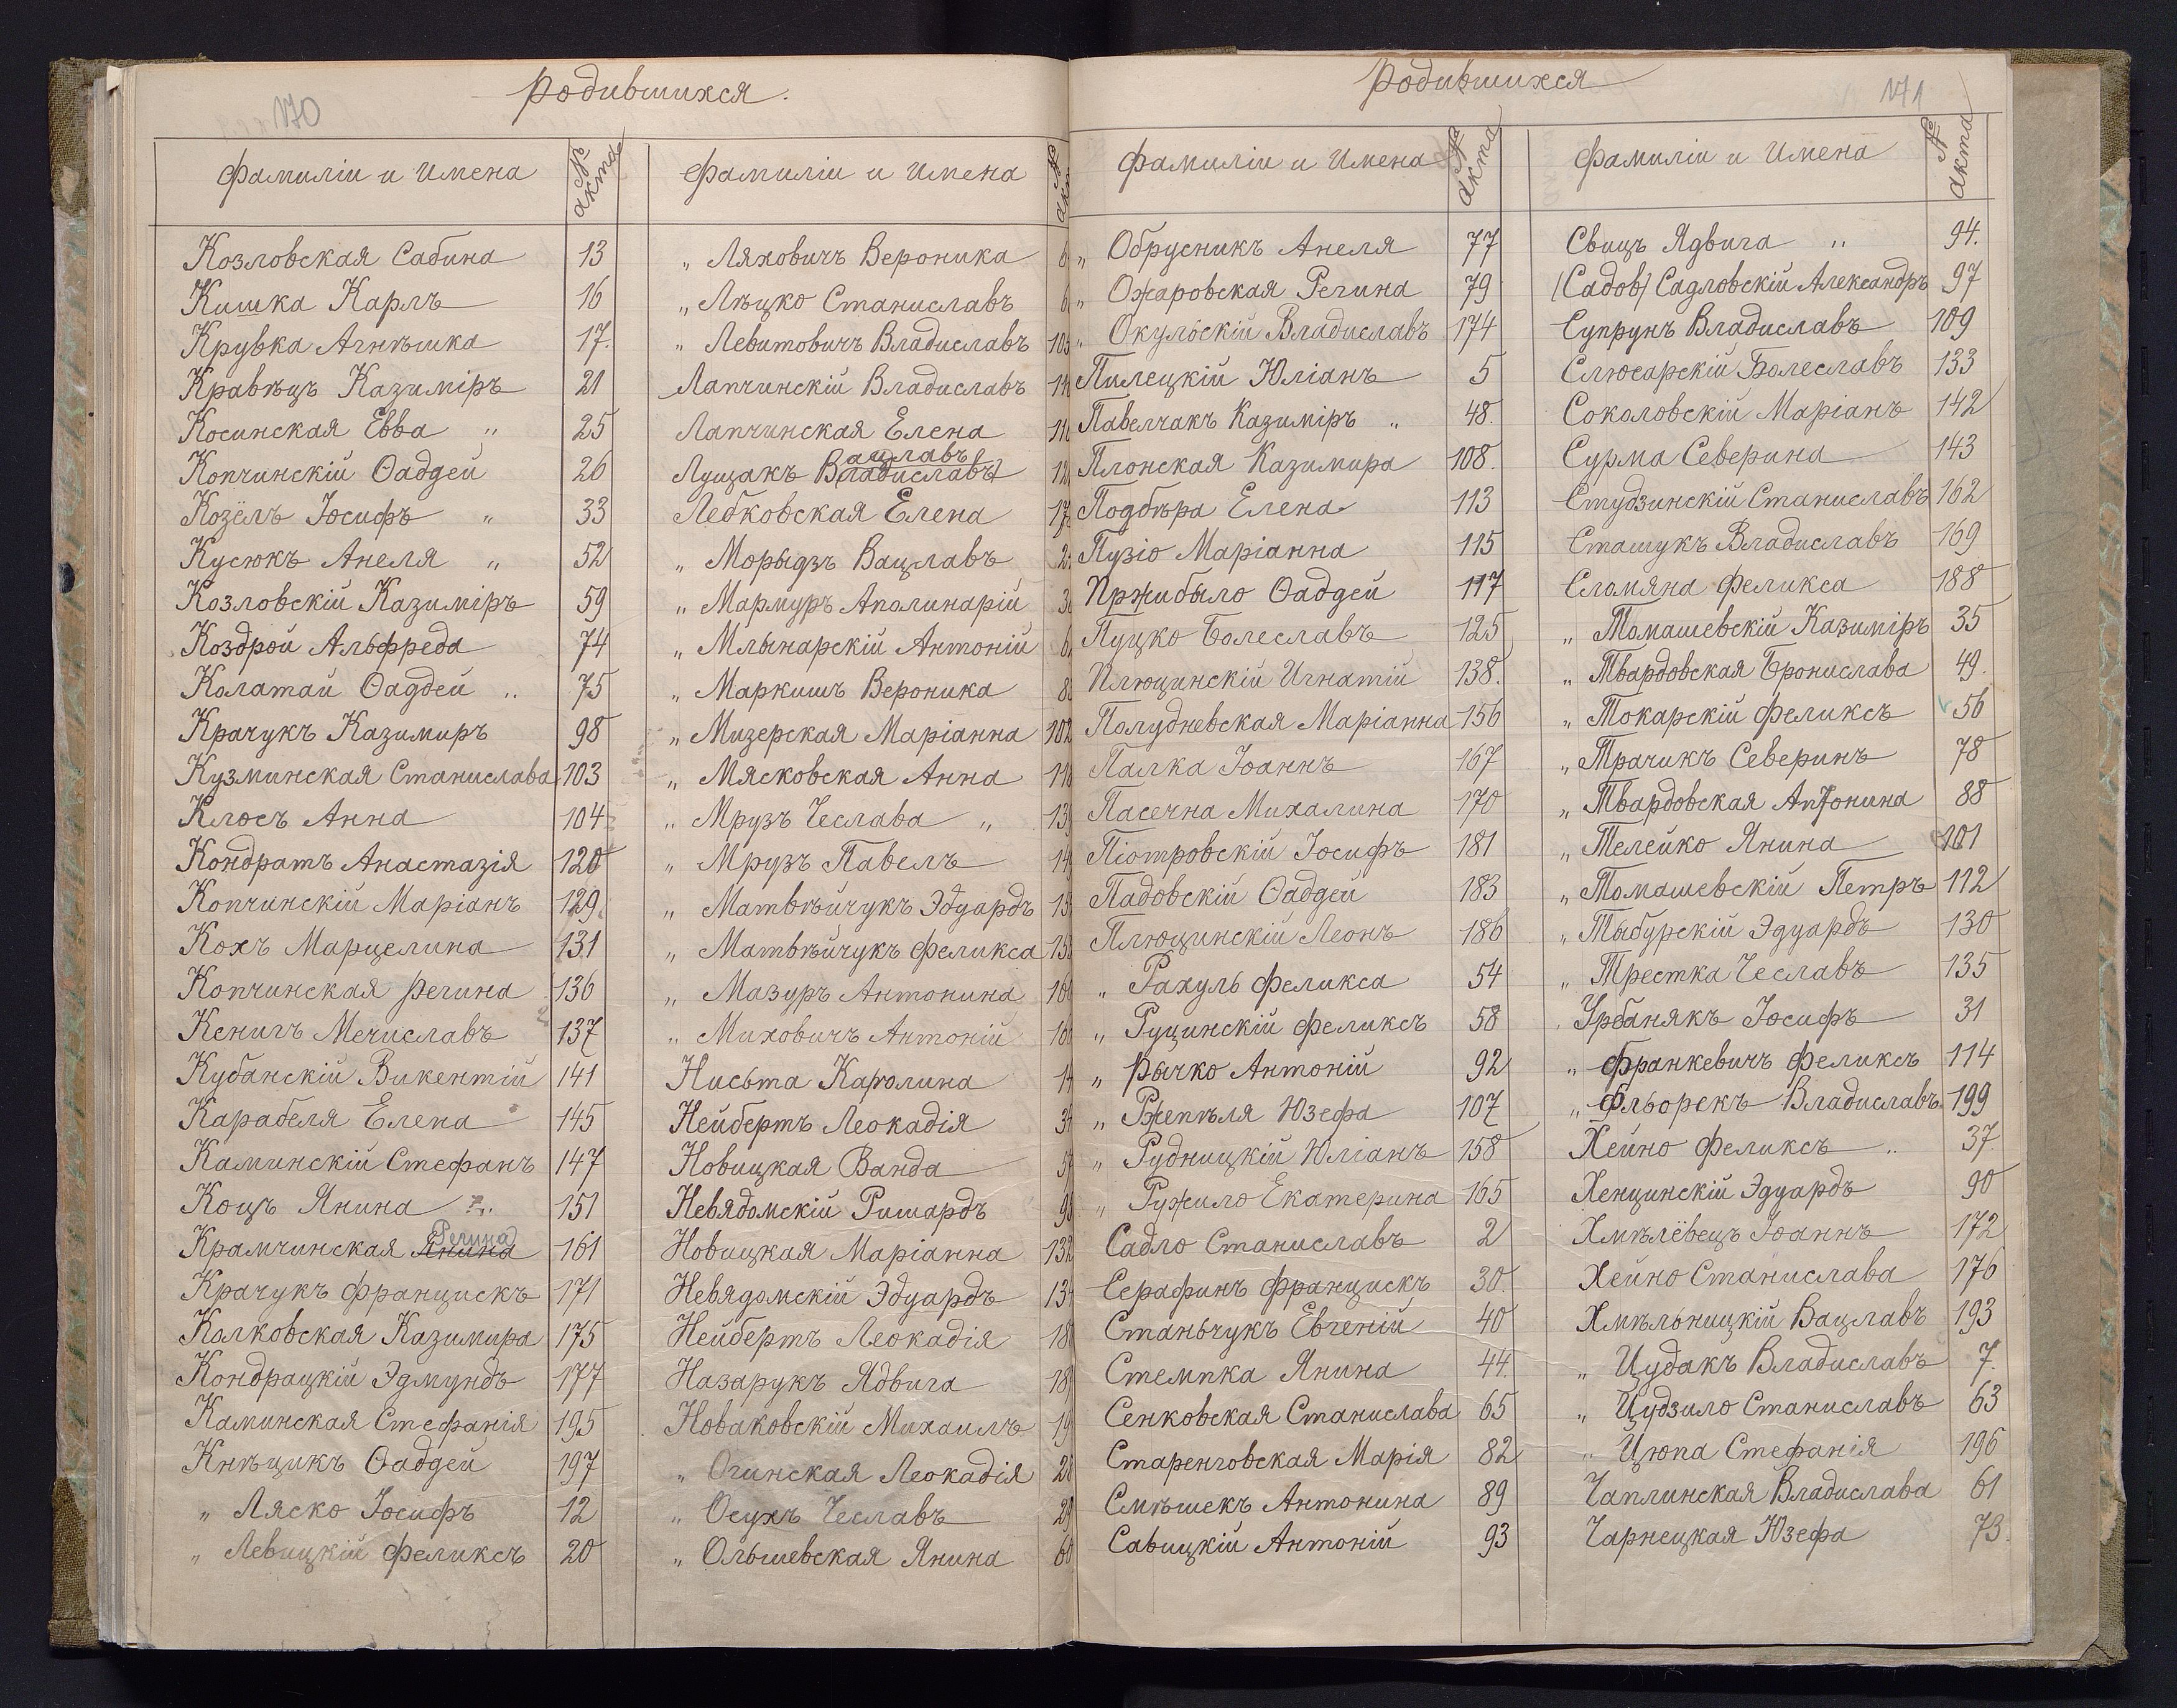 170
родившихся.
Фамиліи и Имена № акта
Козловская Сабина 13
Кишка Карлъ 16
Крувка Агнѣшка 17.
Кравѣцъ Казиміръ 21
Косинская Евва " 25
Копчинскій Ѳаддей 26
Козёлъ Іосифъ " 33
Кусюкъ Анеля " 52
Козловскій Казиміръ 59
Коздрой Альфреда 74
Колатай Ѳаддей " 75
Крачукъ Казимиръ 98
Кузминская Станислава 103
Клосъ Анна 104
Кондратъ Анастазія 120
Копчинскій Маріанъ 129
Кохъ Марцелина 131
Копчинская Регина 136
Кенигъ Мечиславъ 137
Кубанскій Викентій 141
Карабеля Елена 145
Каминскій Стефанъ 147
Коцъ Янина 151
Крамчинская Янина Регина 161
Крачукъ Францискъ 171
Колковская Казимира 175
Кондрацкій Эдмундъ 177
Каминская Стефанія 195
Кнѣцикъ Ѳаддей 197
" Ляско Іосифъ 12
" Левицкій Феликсъ 20
Фамиліи и Имена №
" Ляховичъ Вероника
" Лѣцко Станиславъ
" Левитовичъ Владиславъ
Лапчинскій Владиславъ
Лапчинская Елена
Лущакъ Владиславъ ацлавъ
Лебковская Елена
" Морыдзъ Вацлавъ
" Мармуръ Аполинарій
" Млынарскій Антоній
" Маркишъ Вероника
" Мизерская Маріанна 102
" Мясковская Анна
" Мрузъ Чеслава "
" Мрузъ Павелъ
" Матвѣйчукъ Эдуардъ
" Матвѣйчукъ Феликса
" Мазуръ Антонина
" Миховичъ Антоній
Нисьта Каролина
Нейбертъ Леокадія
Новицкая Ванда
Невядомскій Ришардъ
Новицкая Маріанна 132
Невядомскій Эдуардъ
Нейбертъ Леокадія
Назарукъ Ядвига
Новаковскій Михаилъ
" Огинская Леокадія 28
" Осухъ Чеславъ 29
" Ольшевская Янина 60
171
Родившихся
Фамиліи и Имена № акта
" Обрусникъ Анеля 77
" Ожаровская Регина 79
" Окульскій Владиславъ 174
Пилецкій Юліанъ 5
Павелчакъ Казиміръ " 48.
Плонская Казимира 108.
Подбѣра Елена 113
Пузіо Маріанна 115
Пржибыло Ѳаддей 117
Пуцко Болеславъ 125
Плющинскій Игнатій 138.
Полудневская Маріанна 156
Палка Іоаннъ 167
Пасечна Михалина 170
Піотровскій Іосифъ 181
Падовскій Ѳаддей 183
Плющинскій Леонъ 186
" Рахуль Феликса 54
" Руцинскій Феликсъ 58
" Рычко Антоній 92
" Ржепѣля Юзефа 107
" Рудницкій Юліанъ 158
" Ружило Екатерина 165
Садло Станиславъ 2
Серафинъ Францискъ 30.
Станьчукъ Евгеній 40
Стемпка Янина 44.
Сенковская Станислава 65
Старенговская Марія 82
Смѣшекъ Антонина 89
Савицкій Антоній 93
Фамиліи и Имена № акта
Свицъ Ядвига " 94.
(Садов) Садловскій Александръ 97
Супрунъ Владиславъ 109
Слюсарскій Болеславъ 133
Соколовскій Маріанъ 142
Сурма Северина 143
Студзинскій Станиславъ 162
Сташукъ Владиславъ 169
Сломяна Феликса 188
" Томашевскій Казиміръ 35
" Твардовская Бронислава 49.
" Токарскій Феликсъ 56
" Трачикъ Северинъ 78
" Твардовская Антонина 88
" Телейко Янина 101
" Томашевскій Петръ 112
" Тыбурскій Эдуардъ 130
" Трестка Чеславъ 135
Урбанякъ Іосифъ 31
" Франкевичъ Феликсъ 114
" Фльорекъ Владиславъ 199
Хейно Феликсъ " 37.
Хенцинскій Эдуардъ 90
Хмѣлёвецъ Іоаннъ 172
Хейно Станислава 176
Хмѣльницкій Вацлавъ 193
" Цудакъ Владиславъ 7.
" Цудзило Станиславъ 63
" Цюпа Стефанія 196
Чаплинская Владислава 61
Чарнецкая Юзефа 73.